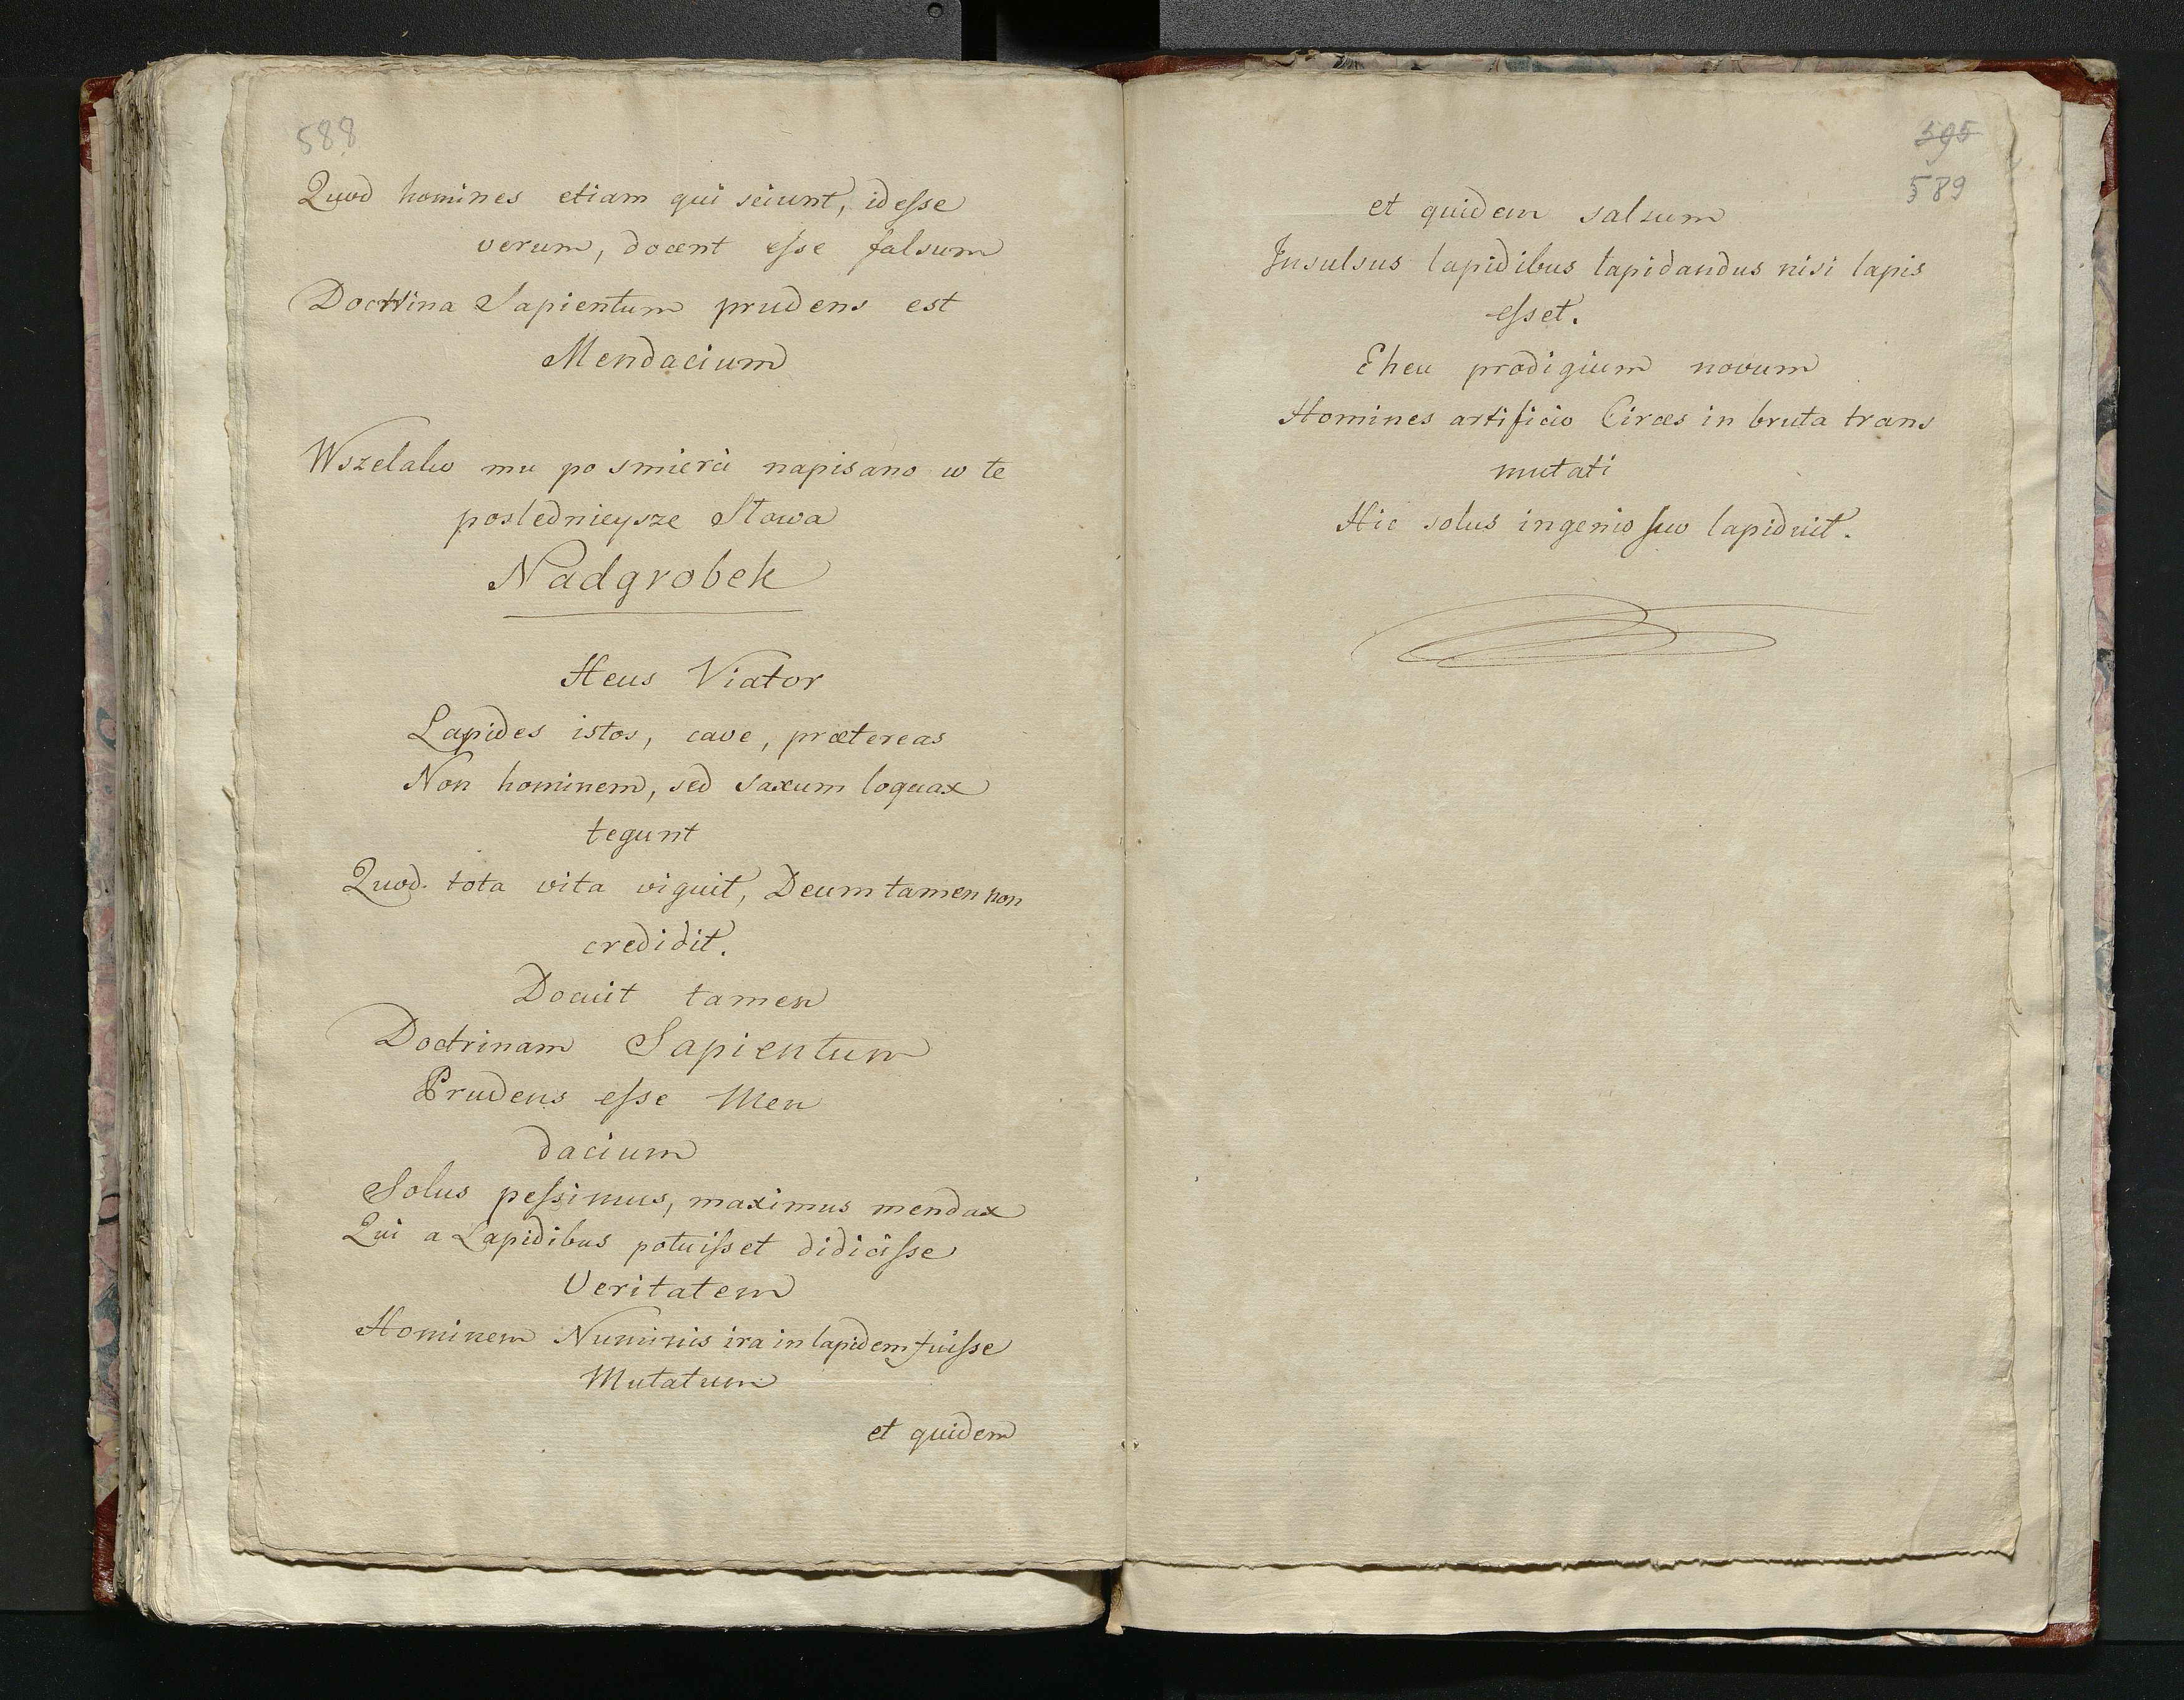 588
Quod homines etiam qui sciunt, id esse
verum, docent esse falsum
Doctrina Sapientum prudens est
Mendacium
Wszelako mu po smierci napisano w te
poslednieysze Słowa
Nadgrobek
Heus Viator
Lapides istos, cave, prætereas
Non hominem, sed saxum loquax
tegunt
Quod tota vita viguit, Deum tamen non
credidit.
Docuit tamen
Doctrinam Sapientum
Prudens esse Men
dacium
Solus pessimus, maximus mendax
Qui a Lapidibus potuisset didicisse
Veritatem
Hominem Numinis ira in lapidem fuisse
Mutatum
et quidem
595
589
et quidem salsum
Insulsus lapidibus lapidandus nisi lapis
esset.
Eheu prodigium novum
Homines artificio Circes in bruta trans
mutati
Hic solus ingenio suo lapiduit.